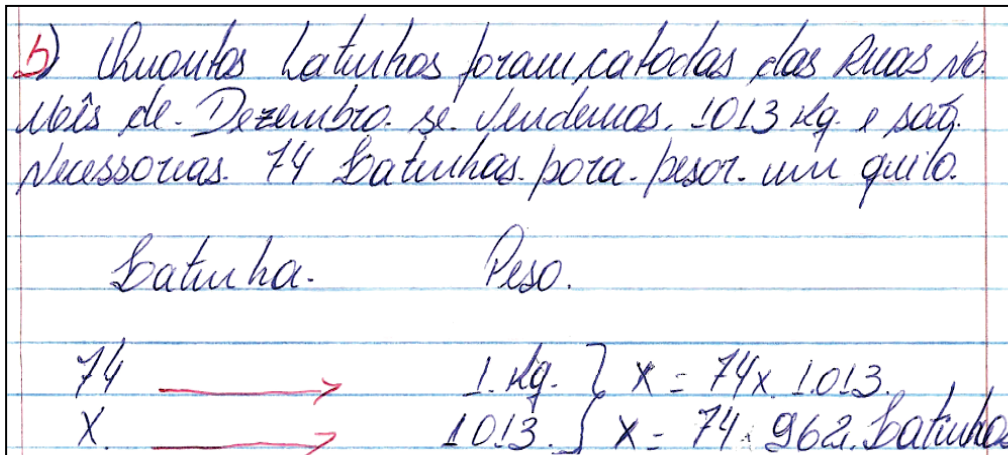 b) Quantas Latinhas foram catadas das Ruas no
Mês de Dezembro se Vendemos 1013 Kg e são
Necessarias 74 Latinhas para pesar um quilo.
Latinha. Peso.
74 → 1 Kg. } X = 74x 1.013.
X. → 1013. } X = 74.962 Latinhas